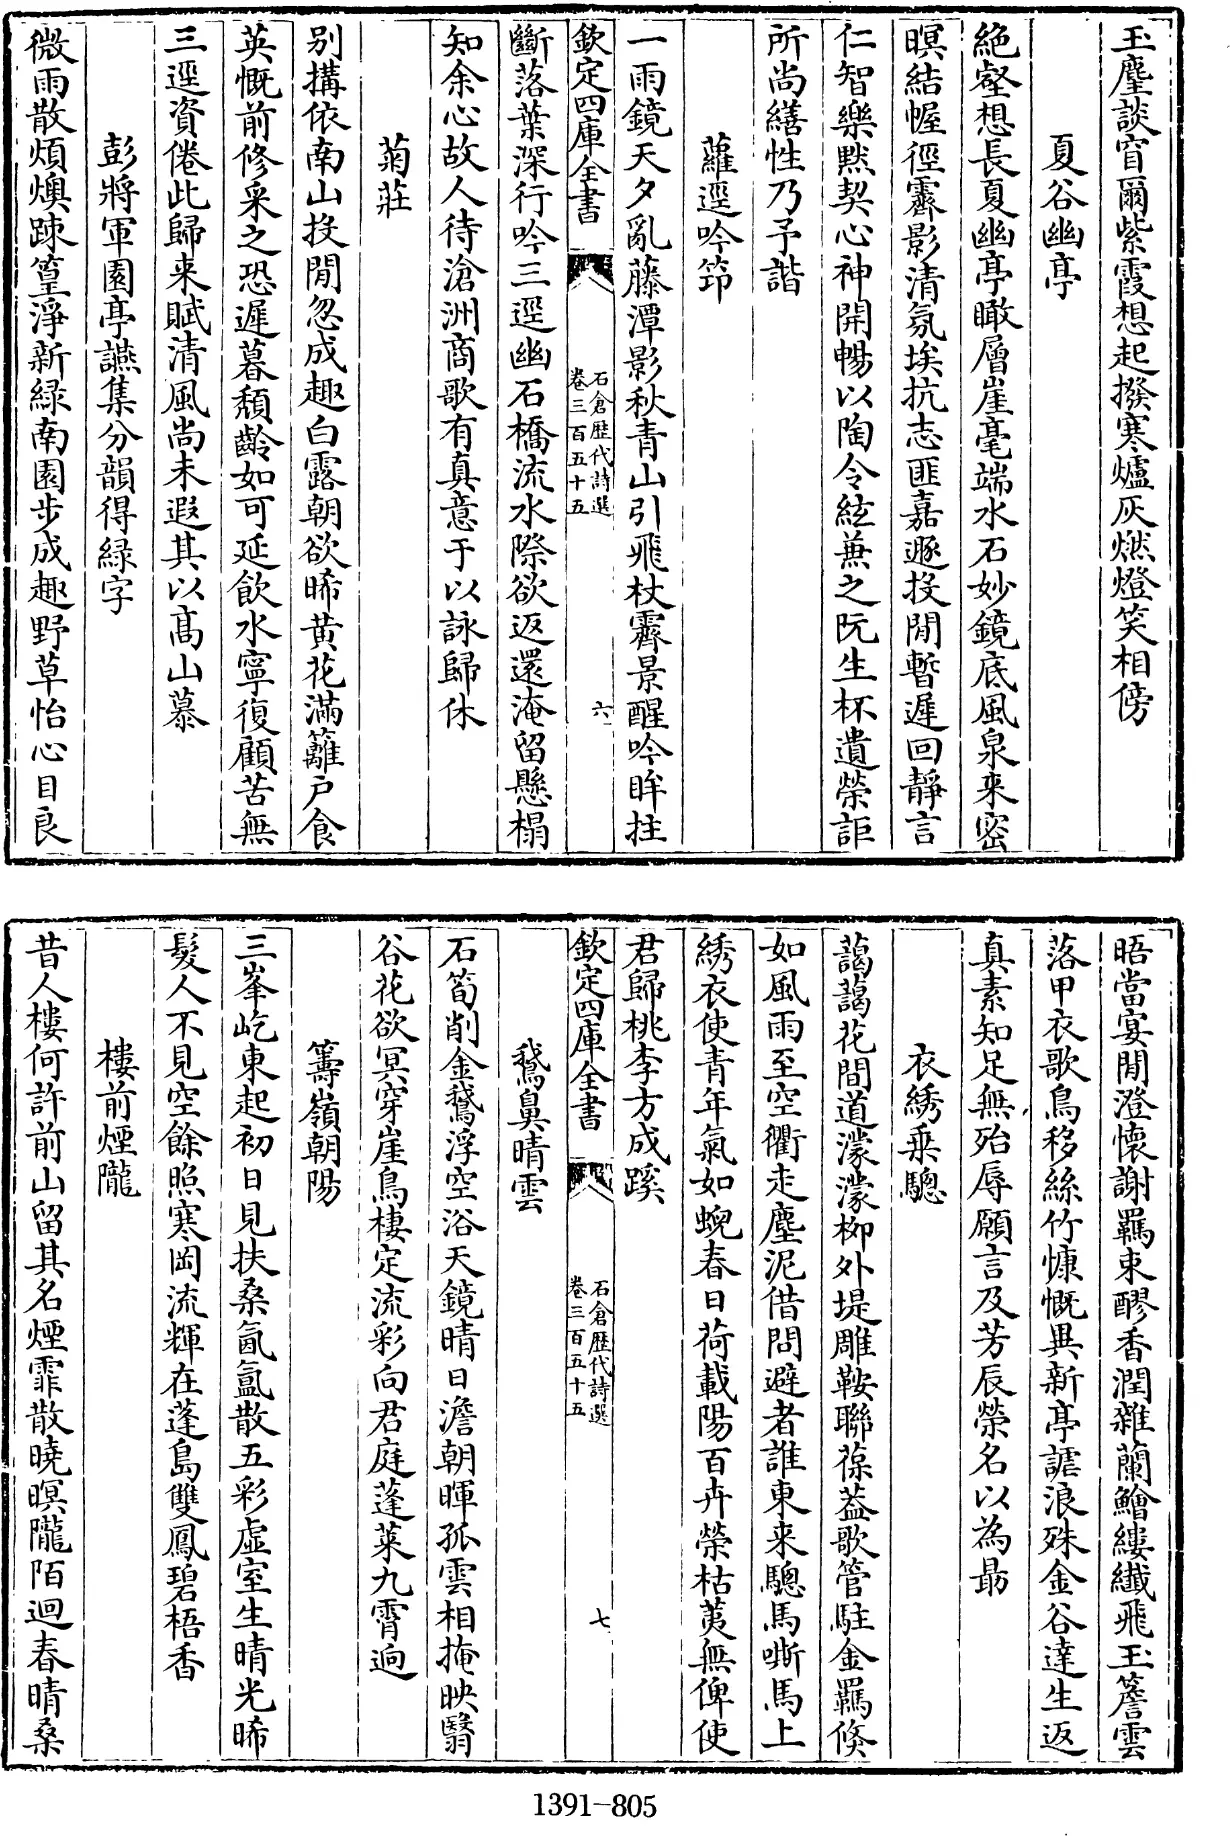 玉麈談窅爾紫霞想起撥寒爐灰燃燈笑相傍
夏谷幽亭
絶壑想長夏幽亭瞰層崖毫端水石妙鏡底風泉来密
暝結幄徑霽影清氛埃抗志匪嘉遯投閒暫遲回靜言
仁智樂黙契心神開暢以陶令絃兼之阮生杯遺榮詎
所尚繕性乃予諧
蘿逕吟笻
一雨鏡天夕亂藤潭影秋青山引飛杖霽景醒吟眸拄
欽定四庫全書
石倉歷代詩選
卷三百五十五
六
斷落葉深行吟三逕幽石橋流水際欲返還淹留懸榻
知余心故人待滄洲商歌有真意于以詠歸休
菊莊
别搆依南山投閒忽成趣白露朝欲晞黄花滿籬戸食
英慨前修采之恐遲暮頽齡如可延飲水寧復顧苦無
三逕資倦此歸来賦清風尚未遐其以高山慕
彭將軍園亭讌集分韻得緑字
微雨散煩燠踈篁淨新緑南園步成趣野草怡心目良
晤當宴閒澄懐謝羈束醪香潤雜蘭鱠縷纎飛玉簷雲
落甲衣歌鳥移絲竹慷慨異新亭謔浪殊金谷達生返
真素知足無殆辱願言及芳辰榮名以為朂
衣綉乗驄
藹藹花間道濛濛柳外堤雕鞍聯葆葢歌管駐金羈倐
如風雨至空衢走塵泥借問避者誰東来驄馬嘶馬上
綉衣使青年氣如蜺春日荷載陽百卉榮枯荑無俾使
君歸桃李方成蹊
欽定四庫全書
石倉歷代詩選
卷三百五十五
七
鵞鼻晴雲
石筍削金鵞浮空浴天鏡晴日澹朝暉孤雲相掩映翳
谷花欲冥穿崖鳥棲定流彩向君庭蓬萊九霄逈
籌嶺朝陽
三峯屹東起初日見扶桑氤氲散五彩虚室生晴光晞
髮人不見空餘照寒岡流輝在蓬島雙鳳碧梧香
樓前煙隴
昔人樓何許前山留其名煙霏散曉暝隴陌迴春晴桑
1391-805